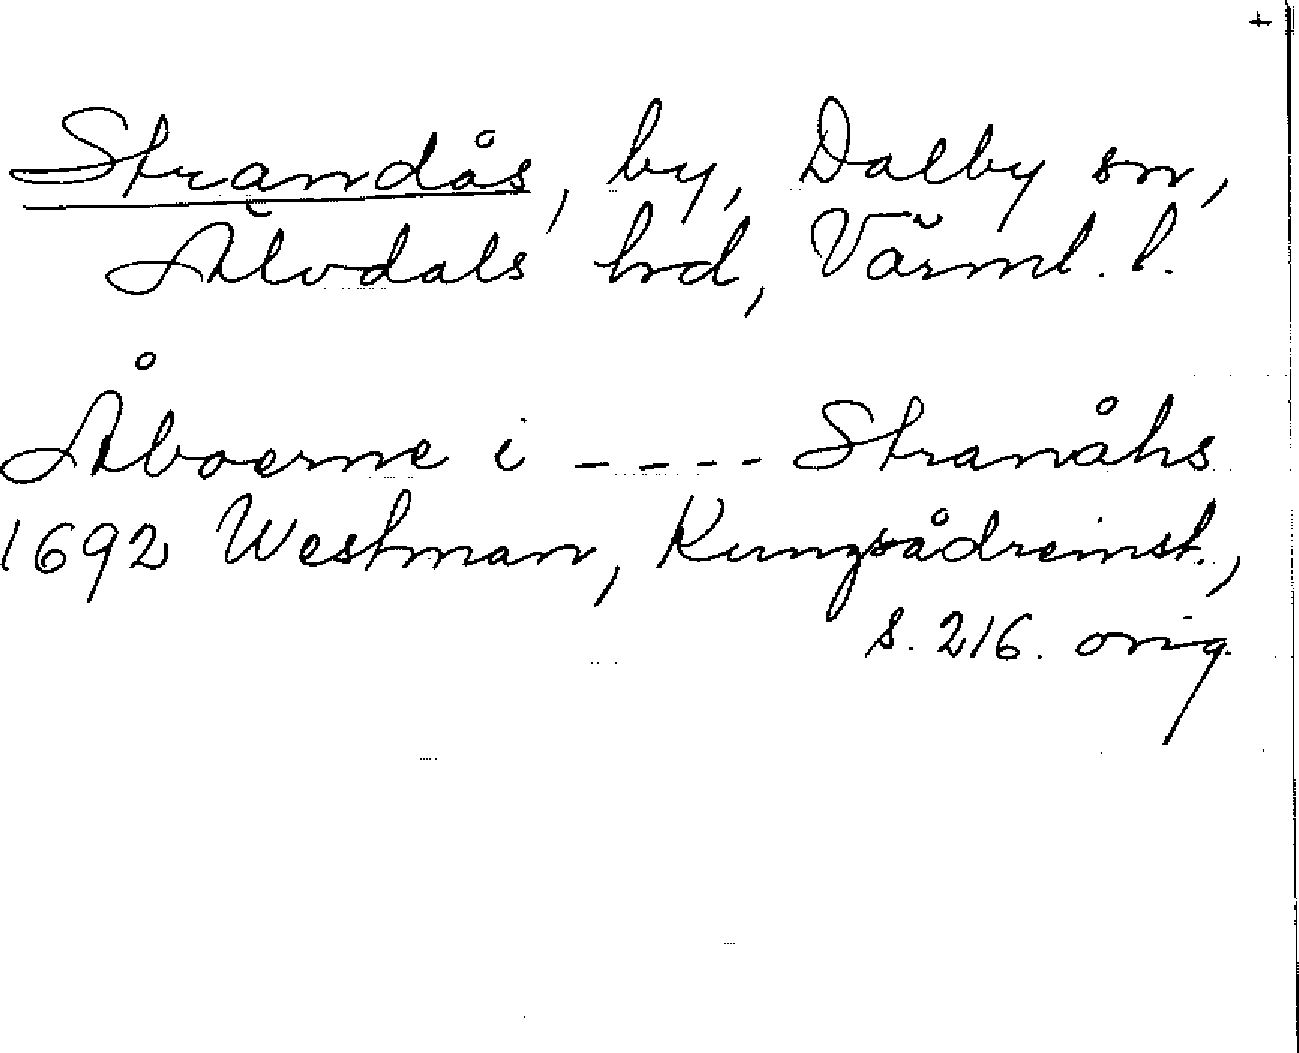 +
Strandås, by, Dalby sn,
Älvdals hrd, Värml. l.
Åboerne i ---- Stranåhs
1692 Westman, Kungsådreinst.,
s. 216. orig.